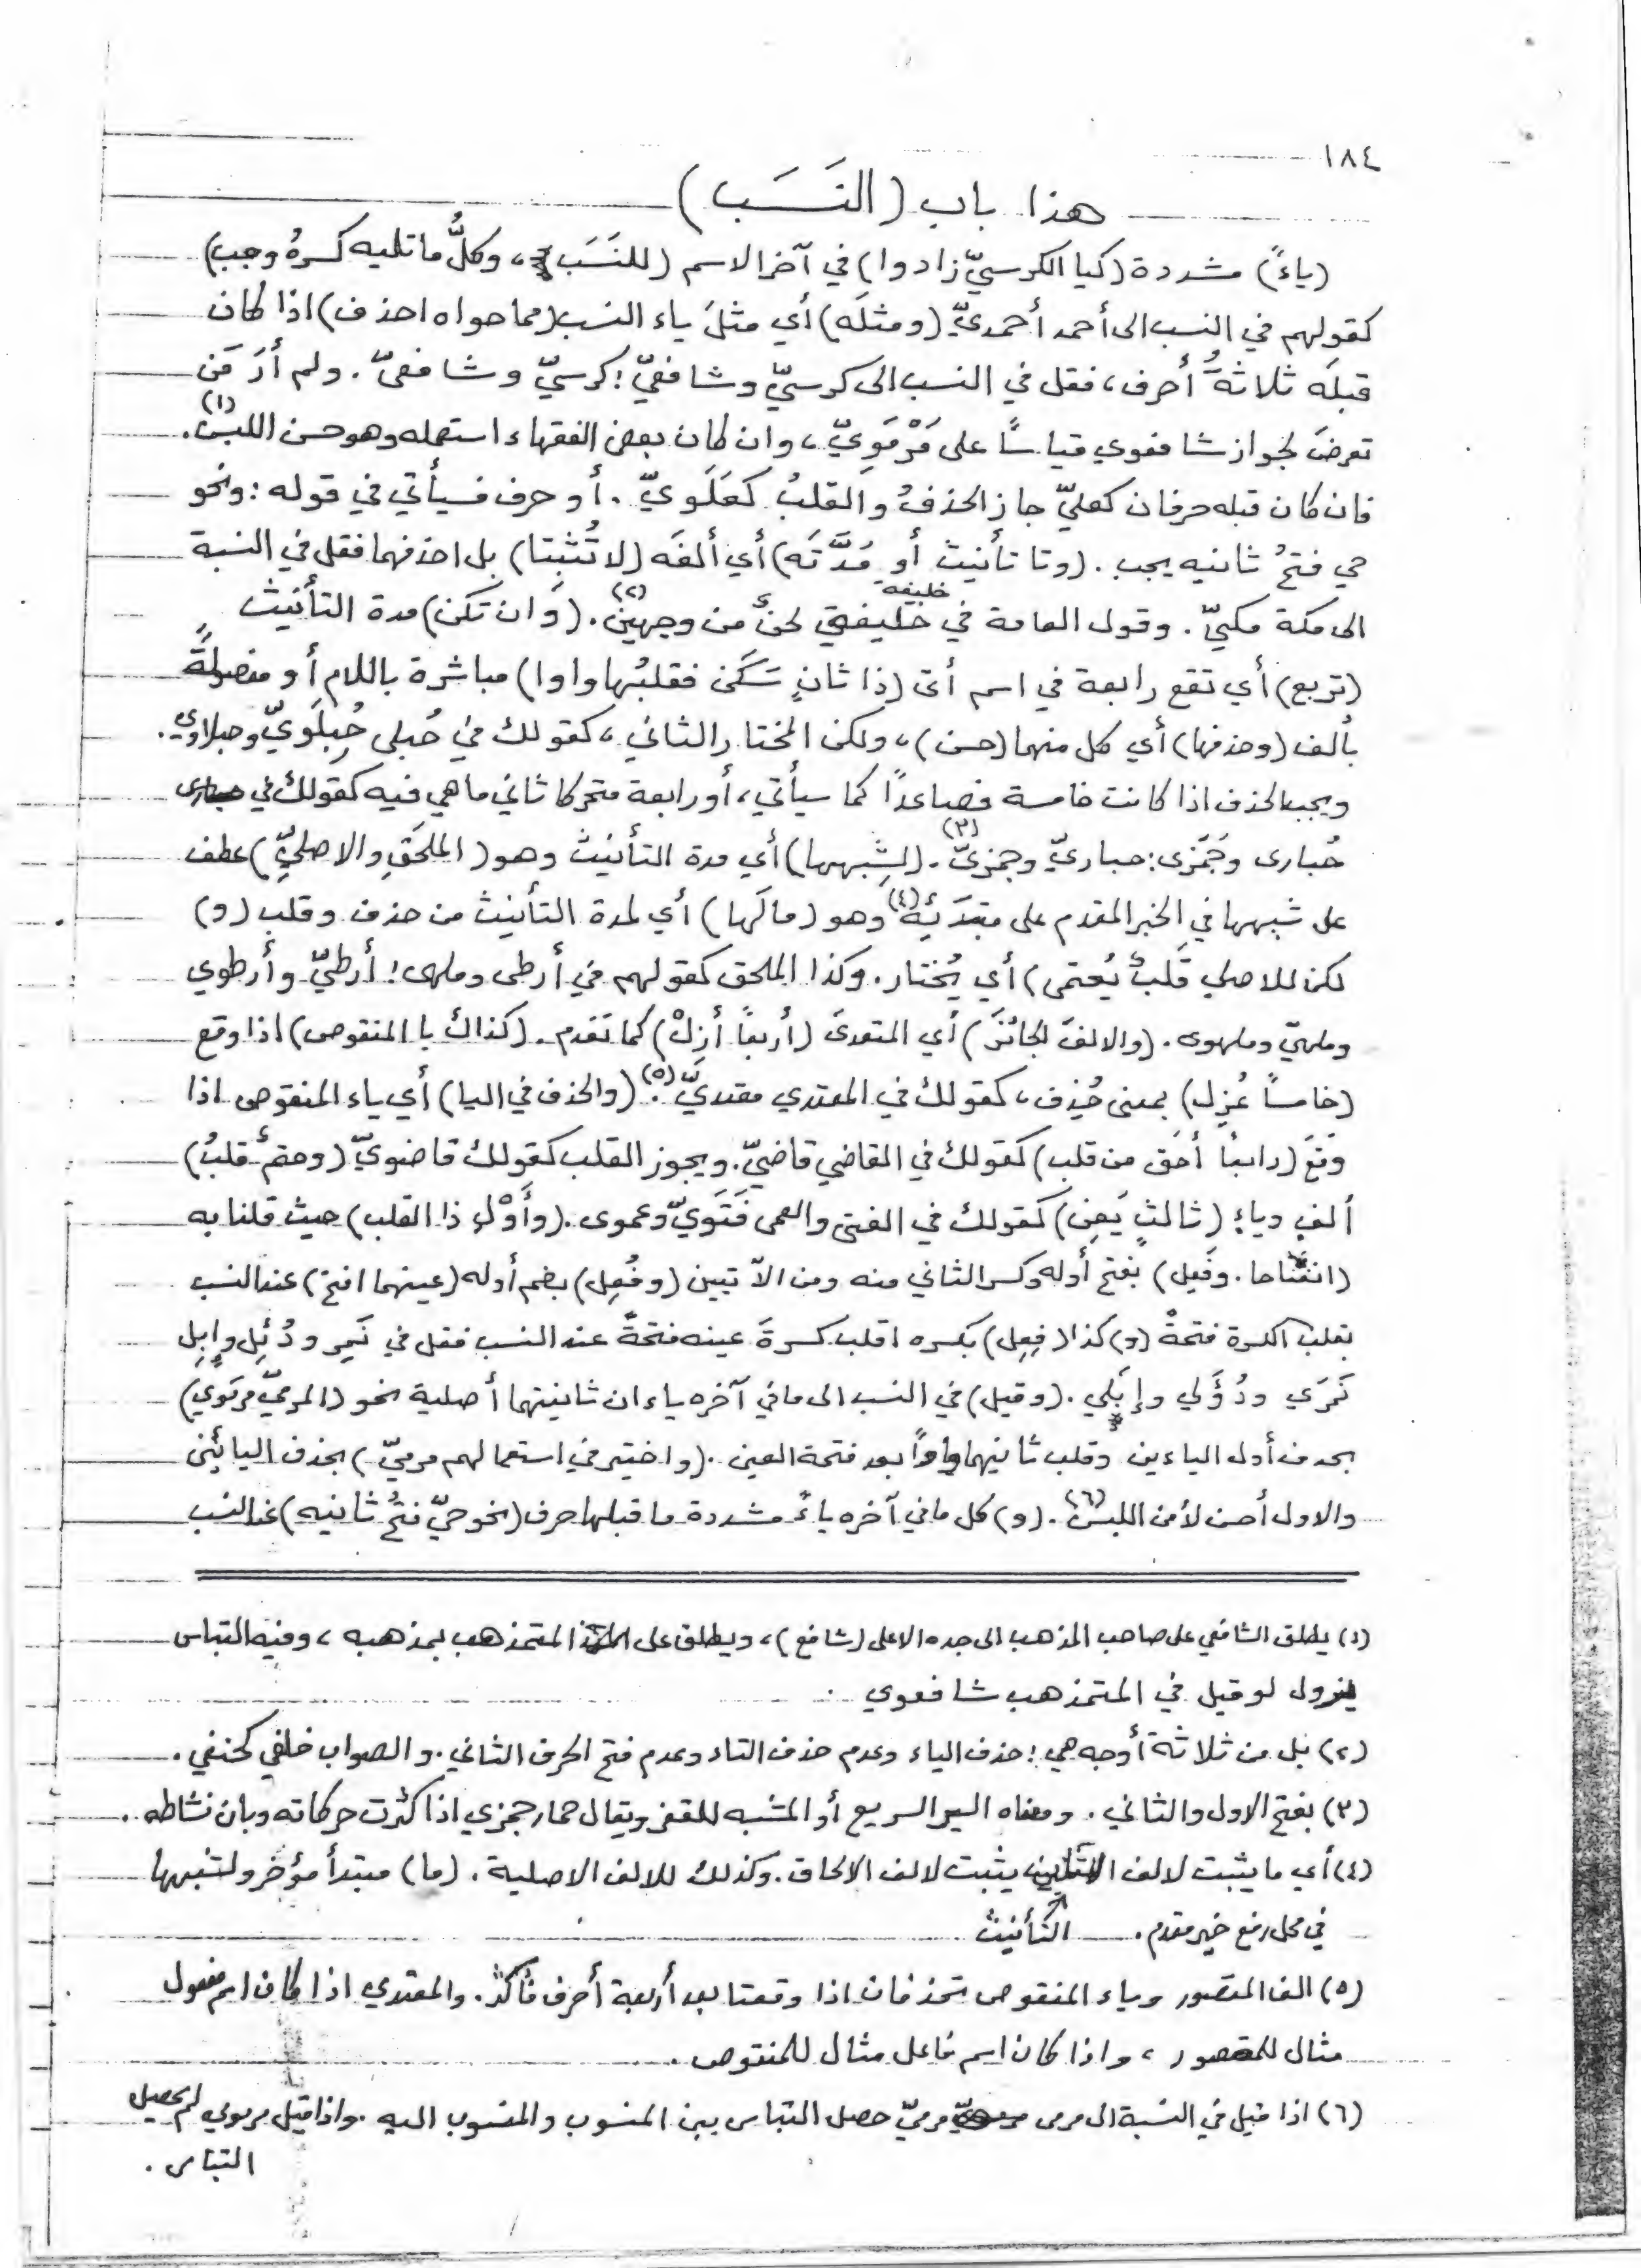 ١٨٤
هذا باب (النَسَب)
(ياءً) مشددة (كيا الكرسيّ زادوا) في آخر الاسم (للنَسَب)، وكلُّ ما تليه كسرهُ وجب)
كقولهم في النسب الى أحمد أحمديّ (ومثلَه) أي مثلَ ياء النسب (مما حواه احذف) اذا كان
قبلَه ثلاثةُ أحرف، فقل في النسب الى كرسيّ وشافعيّ: كرسيّ وشافعيّ. ولم أرَ مَن
تعرضَ لجواز شافعوي قياساً على مَرْمَوِيّ، وان كان بعض الفقهاء استعمله وهو حسن اللبس (١).
فان كان قبله حرفان كعليّ جاز الحذفُ والقلبُ كعَلَويّ. أو حرف فسيأتي في قوله: ونحو
حي فتحُ ثانيه يجب. (وتا تأنيث أو مَدَّتَه) أي ألفَه (لا تُثبِتا) بل احذفهما فقل في النسبة
الى مكة مكيّ. وقول العامة في خليفة خليفتي لحنٌ من وجهين (٢). (وان تكن) مدة التأنيث
(تربع) أي تقع رابعة في اسم أتى (ذا ثانٍ سَكَن فقلبُها واوا) مباشرة باللام أو مفصولةً
بألف (وحذفها) أي كل منهما (حسن)، ولكن المختار الثاني، كقولك في حُبلى حُبلَويّ وحبلاوي.
ويجب الحذف اذا كانت خامسة فصاعداً كما سيأتي، أو رابعة متحركا ثاني ما هي فيه كقولك في
حُبارى وجَمَزى: حباريّ وجمزيّ (٣). (لشِبهها) أي مدة التأنيث وهو (الملحَقِ والاصليِّ) عطف
على شبهها في الخبر المقدم على مبتدَئِه (٤) وهو (ما لَها) أي لمدة التأنيث من حذف وقلب (و)
لكن للاصلي قَلبٌ يُعتمى) أي يُختار. وكذا الملحق كقولهم في أرطى وملهى: أرطيّ وأرطوي
وملهيّ وملهوى. (والالفَ الجائزَ) أي المتعدىَ (أربعاً أزِلْ) كما تقدم. (كذاك يا المنقوص) اذا وقع
(خامساً عُزِل) بمعنى حُذِف، كقولك في المعتدي معتديّ (٥). (والحذف في اليا) أي ياء المنقوص اذا
وقعَ (رابعاً أحَق من قلب) كقولك في القاضي قاضيّ. ويجوز القلب كقولك قاضويّ (وحتمٌ قلبُ)
ألفٍ وياءٍ (ثالثٍ يَعِن) كقولك في الفتى والعمى فَتَويّ وعموى. (وأَوْلِ ذا القلب) حيث قلنا به
(انفتاحا. وفَعِل) بفتح أوله وكسر الثاني منه ومن الآتيين (وفُعِل) بضم أوله (عينهما افتح) عند النسب
بقلب الكسرة فتحةً (و) كذا (فِعِل) بكسره اقلب كسرةَ عينه فتحةً عند النسب فقل في نَمِر ودُئِل وإبِلِ
نَمَرَي ودُؤَلي وإبَلي. (وقيل) في النسب الى ما في آخره ياءان ثانيتهما أصلية نحو (المرميّ مرمَوي)
بحدف أول الياءين وقلب ثانيهما واواً بعد فتحة العين. (واختير في استعمالهم مرميّ) بحذف اليائين
والاول أحسن لأمن اللبس (٦). (و) كل ما في آخره ياءٌ مشددة ما قبلها حرف (نحو حيّ فتحُ ثانيه) عند النسب
(١) يطلق الشافعي على صاحب المذهب الى جده الاعلى (شافع)، ويطلق على المتمذهب بمذهبه، وفيه التباس
يزول لو قيل في المتمذهب شافعوي.
(٢) بل من ثلاثة أوجه هي: حذف الياء وعدم حذف التاء وعدم فتح الحرف الثاني. والصواب خلفي كحنفي.
(٣) بفتح الاول والثاني. ومعناه السير السريع أو المشبه للقفز ويقال حمار جمزي اذا كثرت حركاته وبان نشاطه.
(٤) أي ما يثبت لالف التأنيث يثبت لالف الالحاق. وكذلك للالف الاصلية. (ما) مبتدأ مؤخر ولشبهها
في محل رفع خبر مقدم.
(٥) الف المقصور وياء المنقوص تحذفان اذا وقعتا بعد أربعة أحرف فأكثر. والمعتدي اذا كان اسم مفعول
مثال للمقصور، واذا كان اسم فاعل مثال للمنقوص.
(٦) اذا قيل في النسبة الى مرمى مرميّ حصل التباس بين المنسوب والمنسوب اليه. واذا قيل مرموي لم يحصل
التباس.